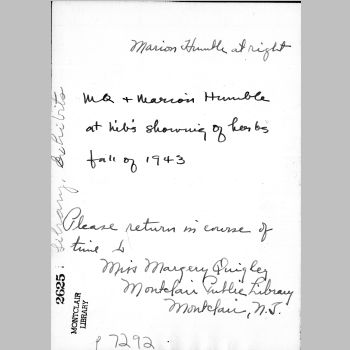 Marion Humble at right
MQ + Marion Humble
at lib's showing of herbs
fall of 1943
Please return in course of
time to
Miss Margery Quigley
Montclair Public Library
Montclair, N.J.
p 7292
Library, Exhibits
2625
MONTCLAIR
LIBRARY